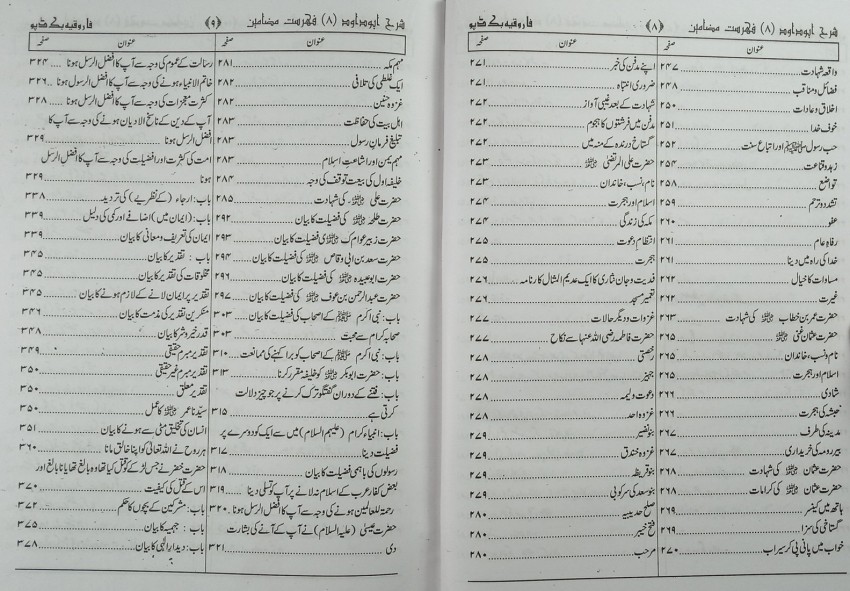 شرح ابوداود (۸) فہرست مضامین
﴿۸﴾
فاروقیہ بک ڈپو
عنوان صفحہ
واقعہ شہادت ۲۴۷
فضائل ومناقب ۲۴۸
اخلاق وعادات ۲۵۰
خوف خدا ۲۵۱
حب رسول ﷺ اور اتباع سنت ۲۵۲
زہد وقناعت ۲۵۴
تواضع ۲۵۸
تشدد وترحم ۲۵۹
عفو ۲۶۰
رفاہ عام ۲۶۱
خدا کی راہ میں دینا ۲۶۱
مساوات کا خیال ۲۶۲
غیرت ۲۶۲
حضرت عمر بن خطاب ؓ کی شہادت ۲۶۳
حضرت عثمان غنی ؓ ۲۶۵
نام ونسب، خاندان ۲۶۵
اسلام اور ہجرت ۲۶۵
شادی ۲۶۶
حبشہ کی ہجرت ۲۶۶
مدینہ کی طرف ۲۶۷
بیر رومہ کی خریداری ۲۶۷
حضرت عثمان ؓ کی شہادت ۲۶۸
حضرت عثمان ؓ کی کرامات ۲۶۸
ہاتھ میں کینسر ۲۶۹
گستاخی کی سزا ۲۶۹
خواب میں پانی پی کر سیراب ۲۷۰
عنوان صفحہ
اپنے مدفن کی خبر ۲۷۱
ضروری انتباہ ۲۷۱
شہادت کے بعد غیبی آواز ۲۷۲
مدفن میں فرشتوں کا ہجوم ۲۷۲
گستاخ درندہ کے منہ میں ۲۷۲
حضرت علی المرتضیٰ ؓ ۲۷۳
نام، نسب، خاندان ۲۷۳
اسلام اور ہجرت ۲۷۴
مکہ کی زندگی ۲۷۴
انتظام دعوت ۲۷۵
ہجرت ۲۷۵
فدیت وجان نثاری کا ایک عدیم المثال کارنامہ ۲۷۶
تعمیر مسجد ۲۷۶
غزوات ودیگر حالات ۲۷۷
حضرت فاطمہ رضی اللہ عنہا سے نکاح ۲۷۷
رخصتی ۲۷۸
جہیز ۲۷۸
دعوت ولیمہ ۲۷۸
غزوہ احد ۲۷۸
بنو نضیر ۲۷۹
غزوہ خندق ۲۷۹
بنو قریظہ ۲۷۹
بنو سعد کی سرکوبی ۲۷۹
صلح حدیبیہ ۲۸۰
فتح خیبر ۲۸۰
مرحب ۲۸۰
شرح ابوداود (۸) فہرست مضامین
﴿۹﴾
فاروقیہ بک ڈپو
عنوان صفحہ
مہم مکہ ۲۸۱
ایک غلطی کی تلافی ۲۸۲
غزوہ حنین ۲۸۲
اہل بیت کی حفاظت ۲۸۳
تبلیغ فرمان رسول ۲۸۳
مہم یمن اور اشاعت اسلام ۲۸۳
خلیفہ اول کی بیعت توقف کی وجہ ۲۸۴
حضرت علی ؓ کی شہادت ۲۸۵
حضرت طلحہ ؓ کی فضیلت کا بیان ۲۹۲
حضرت زبیر عوام کی ؓ فضیلت کا بیان ۲۹۳
حضرت سعد بن ابی وقاص ؓ کی فضیلت کا بیان ۲۹۴
حضرت ابوعبیدہ ؓ کی فضیلت کا بیان ۲۹۶
حضرت عبدالرحمن بن عوف ؓ کی فضیلت کا بیان ۲۹۷
باب: نبی اکرم ﷺ کے اصحاب کی فضیلت کا بیان ۳۰۳
صحابہ کرام سے محبت ۳۰۳
باب: نبی اکرم ﷺ کے اصحاب کو برا کہنے کی ممانعت ۳۱۰
باب: حضرت ابوبکر ؓ کو خلیفہ مقرر کرنا ۳۱۳
باب: فتنے کے دوران گفتگو ترک کرنے پر جو چیز دلالت
کرتی ہے ۳۱۵
باب: انبیاء کرام (علیہم السلام) میں سے ایک کو دوسرے پر
فضیلت دینا ۳۱۷
رسولوں کی باہمی فضیلت کا بیان ۳۱۸
بعض کفار عرب کے اسلام نہ لانے پر آپ کو تسلی دینا ۳۱۹
رحمۃ للعالمین ہونے کی وجہ سے آپ کا افضل الرسل ہونا ۳۲۰
حضرت عیسیٰ (علیہ السلام) نے آپ کے آنے کی بشارت
دی ۳۲۱
عنوان صفحہ
رسالت کے عموم کی وجہ سے آپ کا افضل الرسل ہونا ۳۲۴
خاتم الانبیاء ہونے کی وجہ سے آپ کا افضل الرسول ہونا ۳۲۶
کثرت معجزات کی وجہ سے آپ کا افضل الرسل ہونا ۳۲۸
آپ کے دین کے ناسخ الادیان ہونے کی وجہ سے آپ کا
افضل الرسل ہونا ۳۲۹
امت کی کثرت اور افضلیت کی وجہ سے آپ کا افضل الرسل
ہونا ۳۲۹
باب: ارجاء (کے نظریے) کی تردید ۳۳۸
باب: (ایمان میں) اضافے اور کمی کی دلیل ۳۳۹
ایمان کی تعریف ومعانی کا بیان ۳۳۹
باب: تقدیر کا بیان ۳۴۵
مخلوقات کی تقدیر کا بیان ۳۴۵
تقدیر پر ایمان لانے کے لازم ہونے کا بیان ۳۴۵
منکرین تقدیر کی مذمت کا بیان ۳۴۶
قدر خیر وشر کا بیان ۳۴۸
تقدیر مبرم حقیقی ۳۴۹
تقدیر مبرم غیر حقیقی ۳۵۰
تقدیر معلق ۳۵۰
سیدنا عمر ؓ کا عمل ۳۵۰
انسان کی تخلیق مٹی سے ہونے کا بیان ۳۵۱
ہر روح نے اللہ تعالیٰ کو اپنا خالق مانا ۳۶۰
حضرت خضر نے جس لڑکے کو قتل کیا تھا وہ بالغ تھا یا نابالغ اور
اس کے قتل کی کیفیت ۳۷۰
باب: مشرکین کے بچوں کا حکم ۳۷۲
باب: جہمیہ کا بیان ۳۷۵
باب: دیدار الٰہی کا بیان ۳۷۸